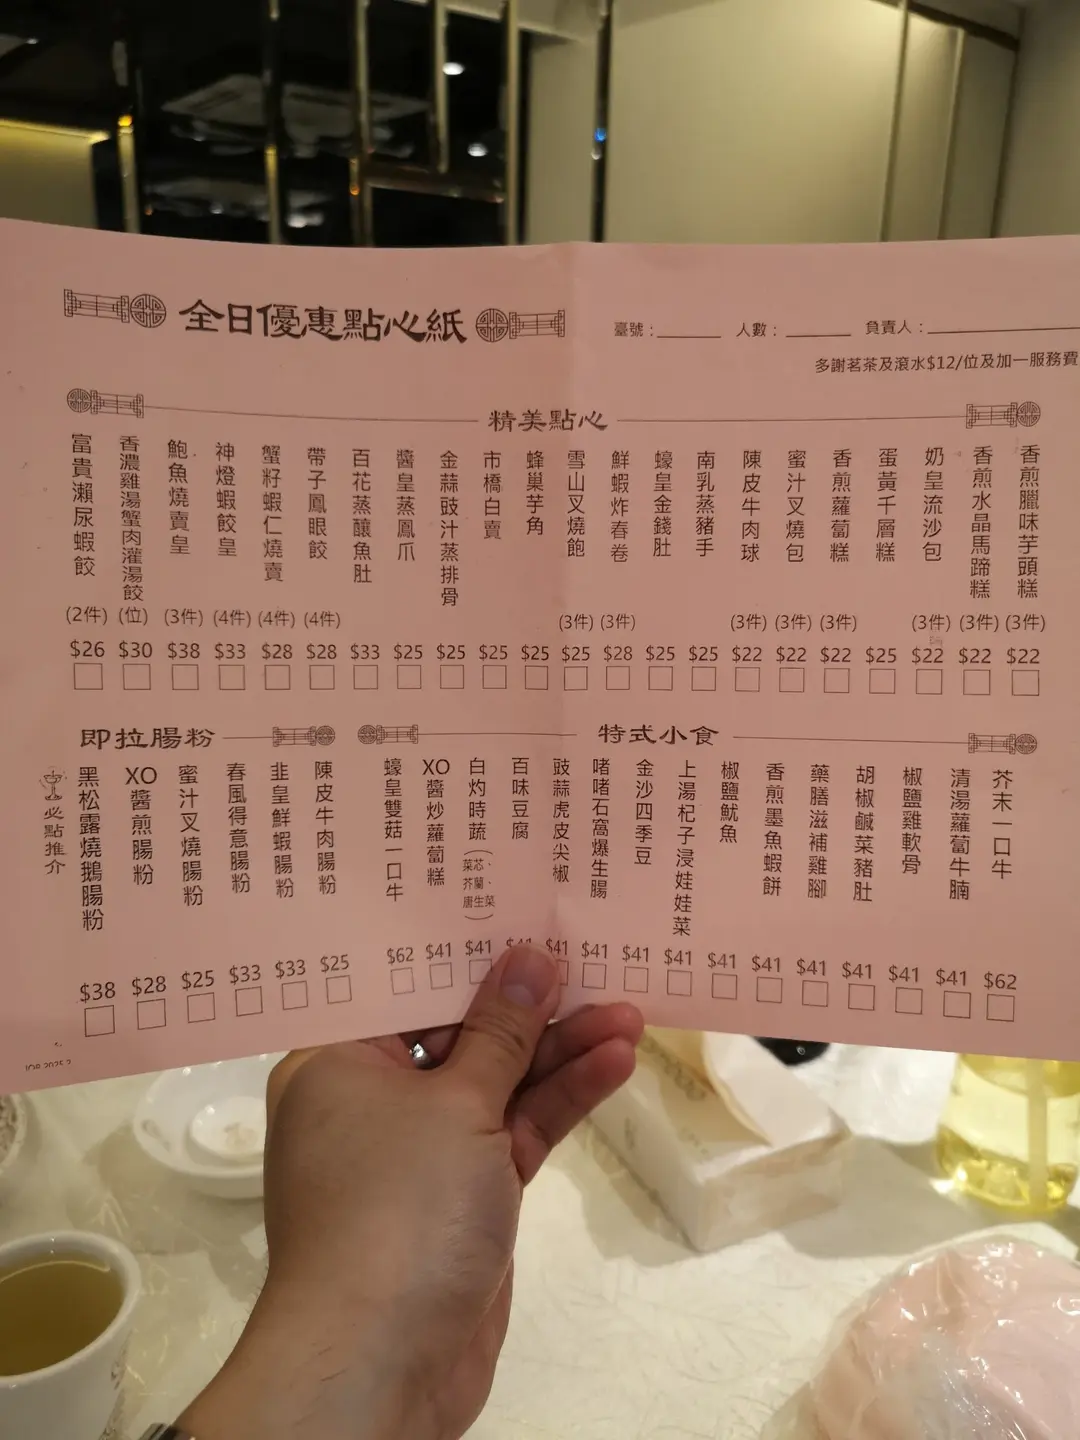 全日優惠點心紙
臺號：
人數：
負責人：
多謝茗茶及滾水$12/位及加一服務費
精美點心
富貴瀨尿蝦餃
(2件)
$26
香濃雞湯蟹肉灌湯餃
(位)
$30
鮑魚燒賣皇
(3件)
$38
神燈蝦餃皇
(4件)
$33
蟹籽蝦仁燒賣
(4件)
$28
帶子鳳眼餃
(4件)
$28
百花蒸釀魚肚
$33
醬皇蒸鳳爪
$25
金蒜豉汁蒸排骨
$25
市橋白賣
$25
蜂巢芋角
$25
雪山叉燒飽
(3件)
$25
鮮蝦炸春卷
(3件)
$28
蠔皇金錢肚
$25
南乳蒸豬手
$25
陳皮牛肉球
(3件)
$22
蜜汁叉燒包
(3件)
$22
香煎蘿蔔糕
(3件)
$22
蛋黃千層糕
$25
奶皇流沙包
(3件)
$22
香煎水晶馬蹄糕
(3件)
$22
香煎臘味芋頭糕
(3件)
$22
即拉腸粉
必點推介
黑松露燒鵝腸粉
$38
XO醬煎腸粉
$28
蜜汁叉燒腸粉
$25
春風得意腸粉
$33
韭皇鮮蝦腸粉
$33
陳皮牛肉腸粉
$25
特式小食
蠔皇雙菇一口牛
$62
XO醬炒蘿蔔糕
$41
白灼時蔬
(菜芯、
芥蘭、
唐生菜)
$41
百味豆腐
$41
豉蒜虎皮尖椒
$41
啫啫石窩爆生腸
$41
金沙四季豆
$41
上湯杞子浸娃娃菜
$41
椒鹽魷魚
$41
香煎墨魚蝦餅
$41
藥膳滋補雞腳
$41
胡椒鹹菜豬肚
$41
椒鹽雞軟骨
$41
清湯蘿蔔牛腩
$41
芥末一口牛
$62